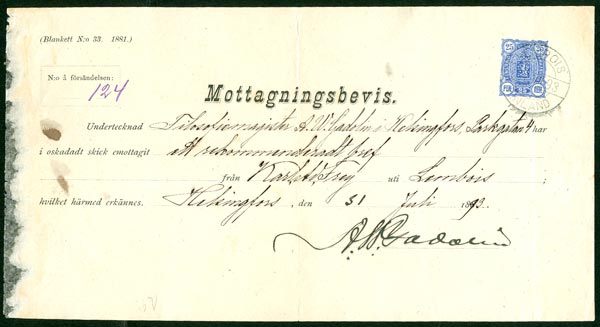 (Blankett N:o 33. 1881.)
N:o å försändelsen:
124
Mottagningsbevis.
Undertecknad Filosofiemagister A. W. Gadolin i Helsingfors, Parkgatan 4 har
i oskadadt skick emottagit ett rekommenderadt bref
från Karl Frey uti Lembois ;
hvilket härmed erkännes. Helsingfors, den 31 Juli 1893.
A. W. Gadolin
25 25
PEN. 25 PEN.
OIS
93
LAND